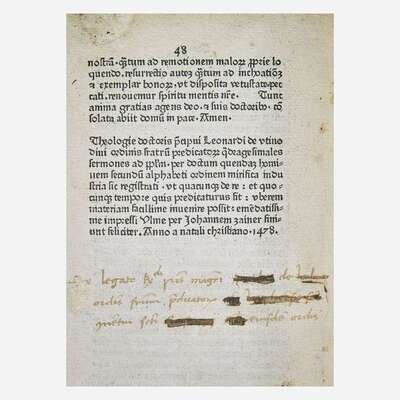 48
nostrã. q̃tum ad remotionem malor̃ ꝓprie lo
quendo. resurrectio autez q̃tum ad inchoatiõz
⁊ exemplar bonoꝝ, vt disposita vetustate pec
cati. renouemur spiritu mentis nr̃e. Tunc
anima gratias agens deo ⁊ suis doctorib⁹ cõ
solata abiit domũ in pace. Amen.
Theologie doctoris p̃cipui Leonardi de vtino
diui ordinis fratrũ predicatoꝝ q̃dragesimales
sermones ad pp̃lm. per doctum quendaz homi
nem secundũ alphabeti ordinem mirifica indu
stria sic registrati. vt quacunq̃ de re: et quo
cunq̃ tempore quis predicaturus sit: vberem
materiam facillime inuenire possit: emẽdatissi
me impressi Vlme per Johannem zainer fini
unt feliciter. Anno a natali christiano. 1478.
Ex legato magri de
ordis predicatorum
eiusdem ordis